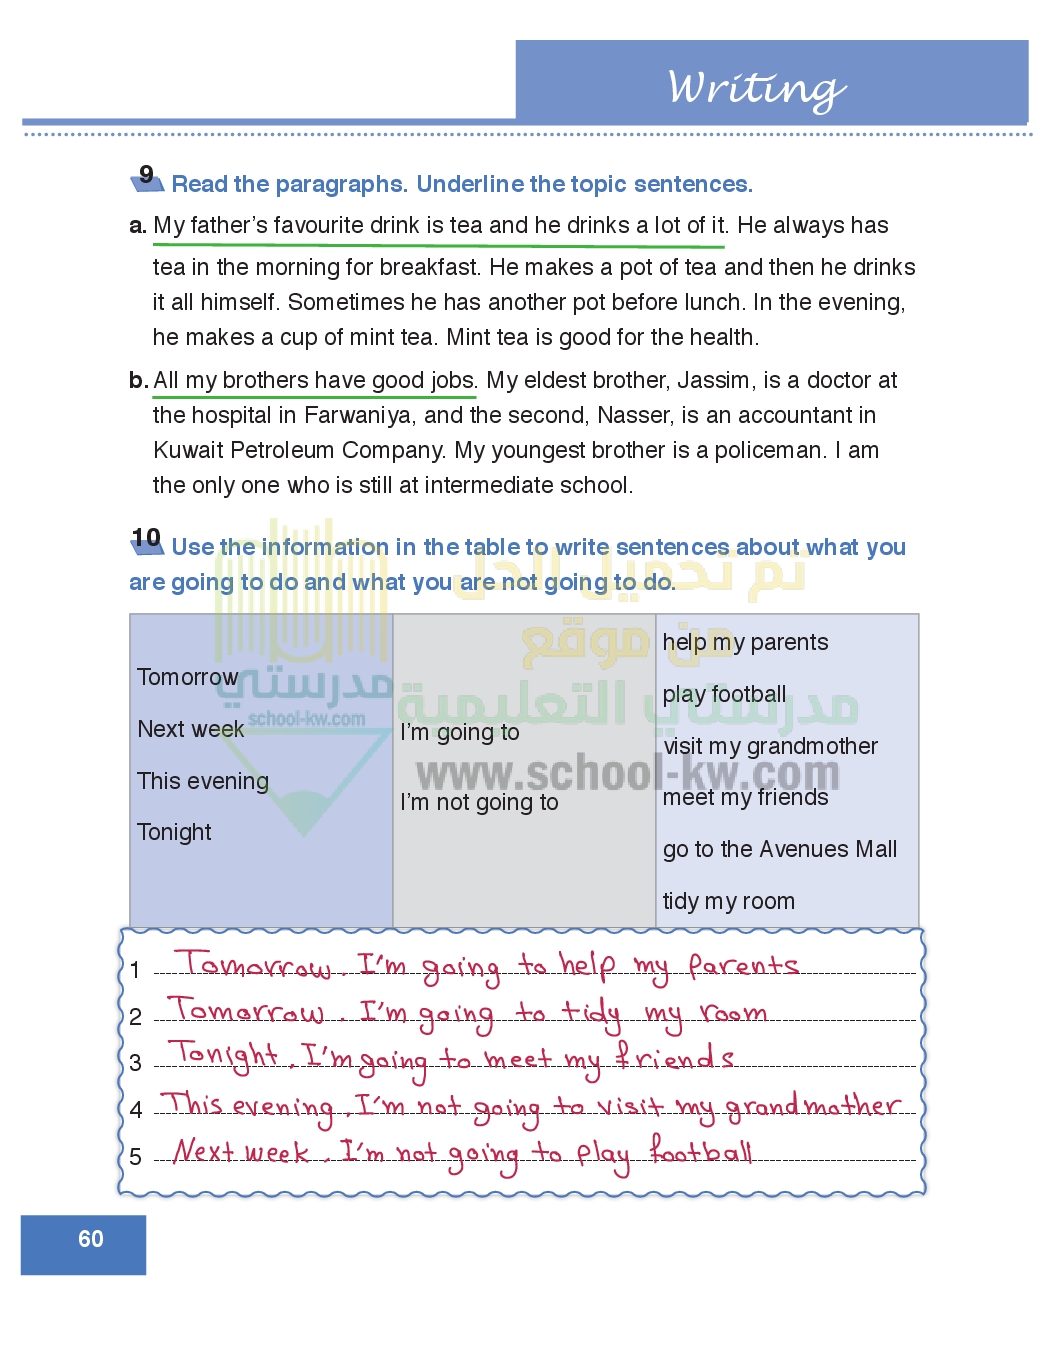 Writing
9 Read the paragraphs. Underline the topic sentences.
a. My father's favourite drink is tea and he drinks a lot of it. He always has
tea in the morning for breakfast. He makes a pot of tea and then he drinks
it all himself. Sometimes he has another pot before lunch. In the evening,
he makes a cup of mint tea. Mint tea is good for the health.
b. All my brothers have good jobs. My eldest brother, Jassim, is a doctor at
the hospital in Farwaniya, and the second, Nasser, is an accountant in
Kuwait Petroleum Company. My youngest brother is a policeman. I am
the only one who is still at intermediate school.
10 Use the information in the table to write sentences about what you
are going to do and what you are not going to do.
تم تحميل الحل
من موقع
مدرستي التعليمية
www.school-kw.com
مدرستي
school-kw.com
Tomorrow
Next week
This evening
Tonight
I'm going to
I'm not going to
help my parents
play football
visit my grandmother
meet my friends
go to the Avenues Mall
tidy my room
1 Tomorrow. I'm going to help my parents
2 Tomorrow. I'm going to tidy my room
3 Tonight. I'm going to meet my friends
4 This evening. I'm not going to visit my grandmother
5 Next week. I'm not going to play football
60